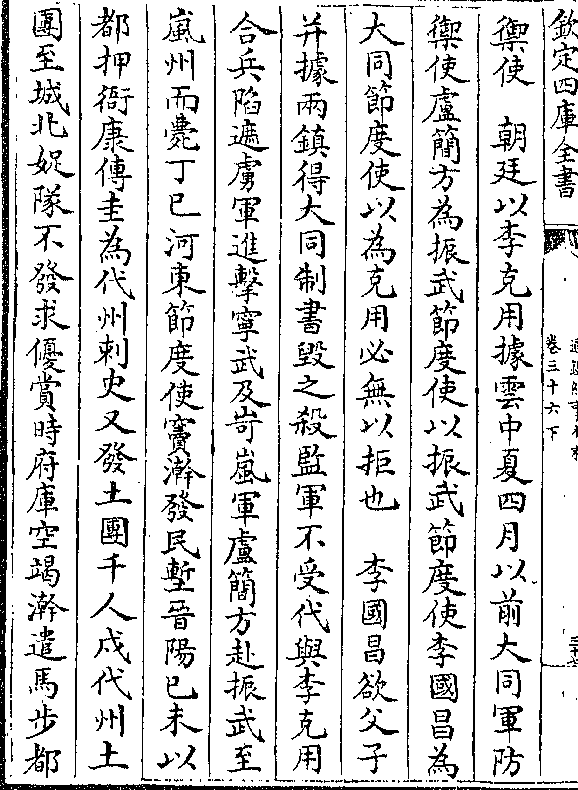 欽定四庫全書
卷三十六下
禦使　朝廷以李克用據雲中夏四月以前大同軍防
禦使盧簡方為振武節度使以振武節度使李國昌為
大同節度使以為克用必無以拒也　李國昌欲父子
并據兩鎮得大同制書毀之殺監軍不受代與李克用
合兵陷遮虜軍進擊寧武及岢嵐軍盧簡方赴振武至
嵐州而薨丁巳河東節度使竇澣發民塹晉陽已未以
都押衙康傳圭為代州刺史又發土團千人戍代州土
團至城北娖隊不發求優賞時府庫空竭澣遣馬步都